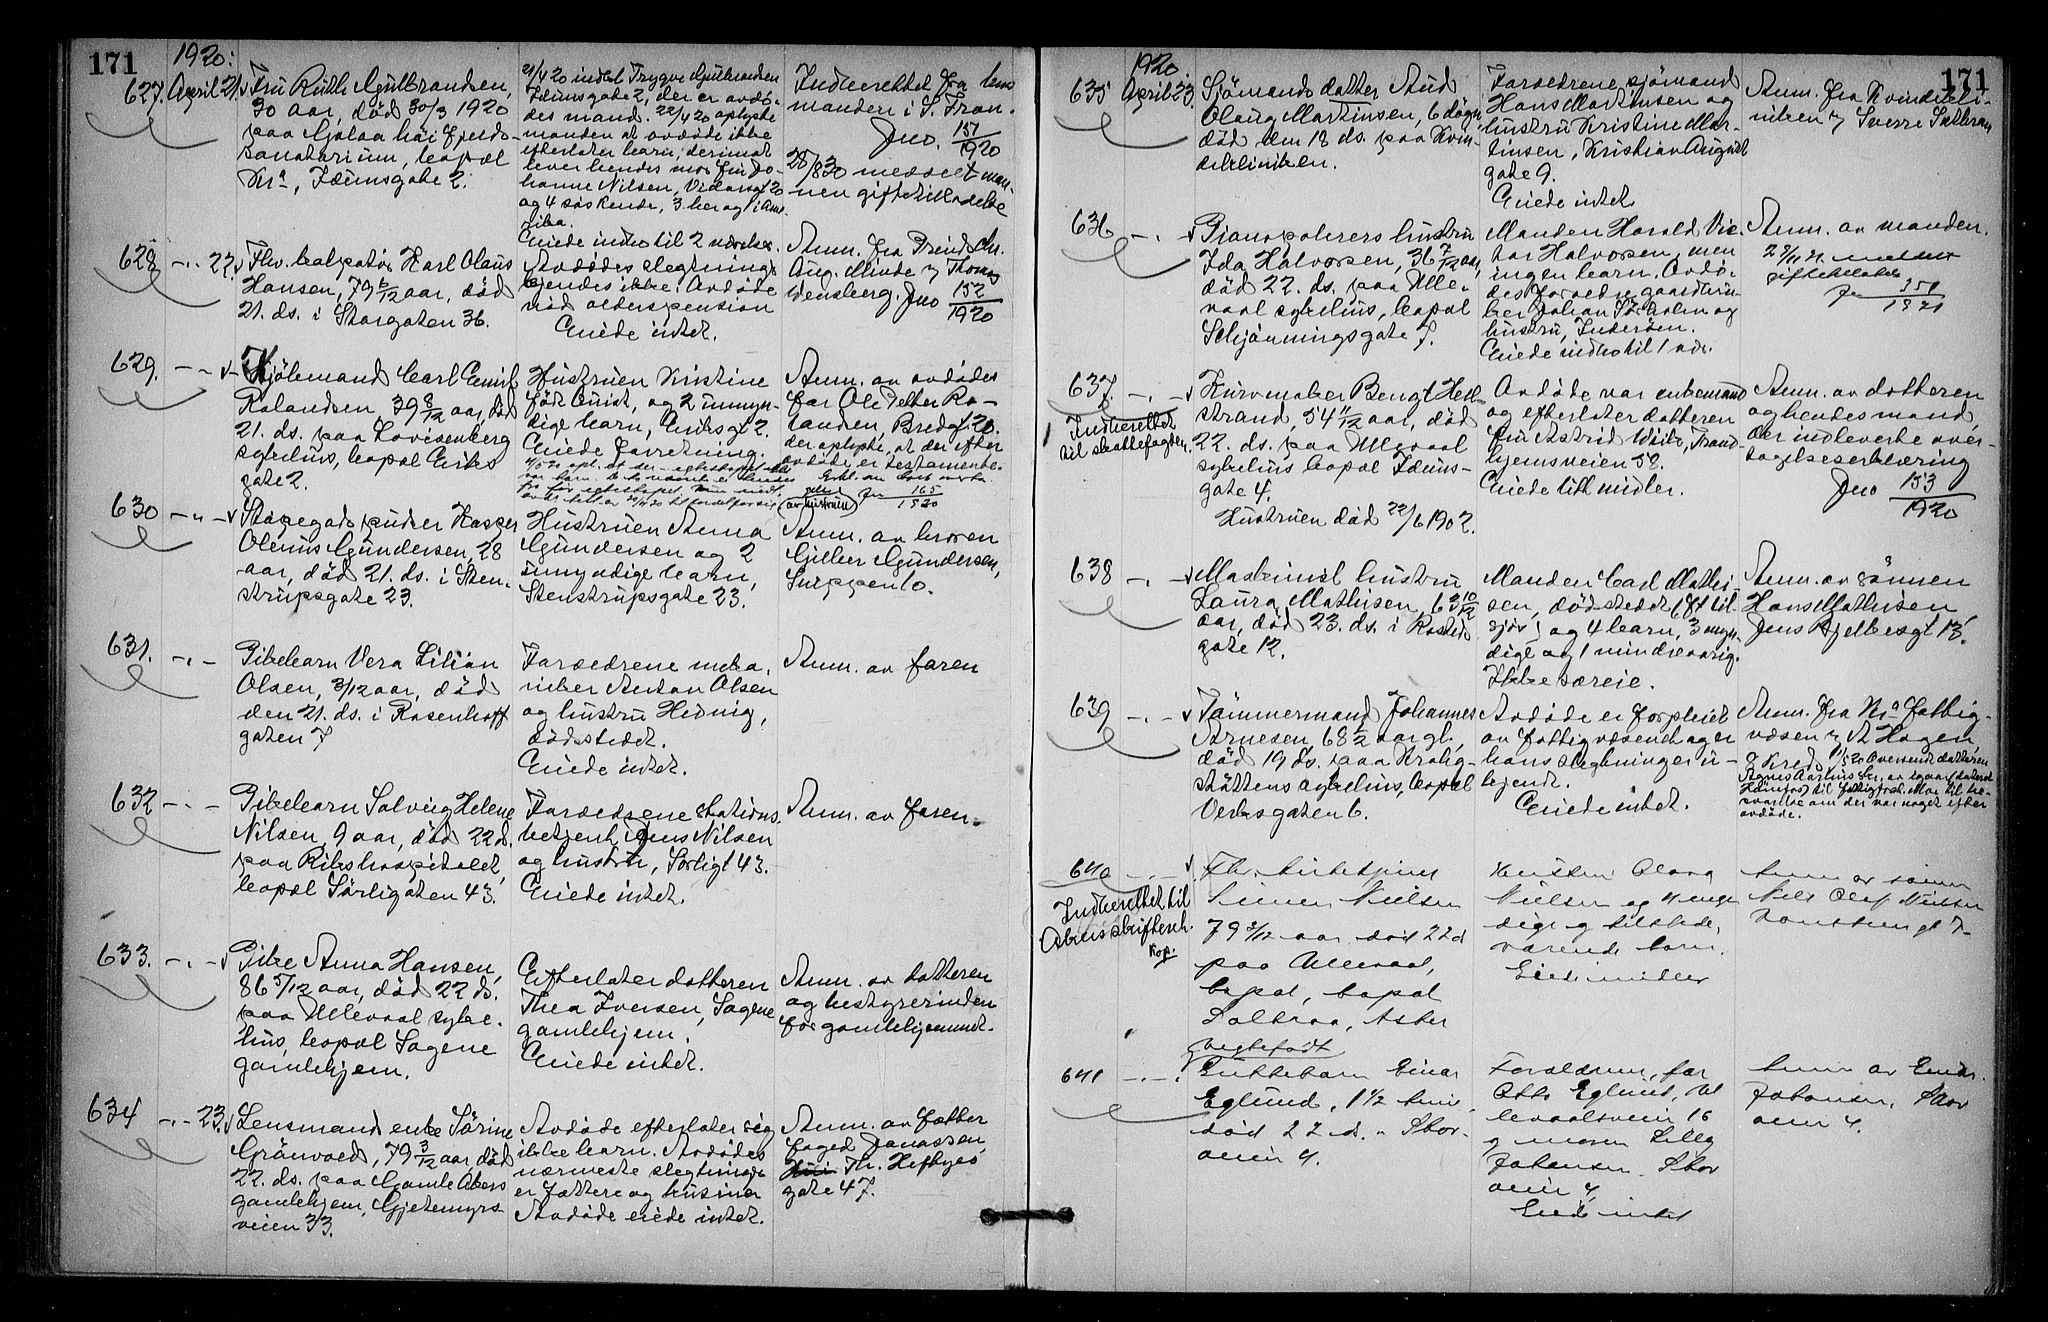 171
1920:
627. April 21. Fru Ruth Gulbrandsen,
30 aar, død 30/3 1920
paa Gjøsa
sanatorium, bopæl
Kra, Idunsgate 2.
21/4 20 indlet Trygve Gulbrandsen
Idunsgate 2, der er avdø-
des mand. 22/4 20 oplyste
manden at avdøde ikke
efterlater barn, derimot
lever hendes mor fru Jo-
hanne Nilsen, Vidarsgt 20
og 4 søskende, 3 her og 1 i Ame-
rika.
Eiede indbo til 2 værelser
Indberettet fra lens
manden i S. Fron.
Jno. 151/1920
28/8 30 meddelt man-
nen gifteskilsadelse
628 -„- 22. Fhv. Karl Olaus
Hansen, 79 6/12 aar, død
21. ds. i Storgaten 36.
Avdødes slegtninge
kjendes ikke. Avdøde
nød alderspension
Eiede intet.
Anm. fra Chr.
Aug. Minde v/ Thomas
Wensberg. Jno 152/1920
629. -„- Kjølemand Carl Emil
Rolandsen 39 8/12 aar, død
21. ds. paa Lovisenberg
sykehus, bopæl Eriks
gate 2.
Hustruen Kristine
født Quist, og 2 umyn-
dige barn, Eriksgt 2.
Eiede forretning.
Anm. av avdødes
far Ole Petter Ro-
landsen, Bredgt. 20.
der oplyste, at der efter
avdøde er testamente.
(av hustruen) Jno 165/1920
630 -„- Støpegods pudser Kasper
Olenius Gundersen 28
aar, død 21. ds. i Sten-
strupsgate 23.
Hustruen Anna
Gundersen og 2
umyndige barn,
Stenstrupsgate 23.
Anm. av broren
Gilber Gundersen,
Snippen 10.
631. -„- Pikebarn Vera Lilian
Olsen, 3/12 aar, død
den 21. ds. i Rosenhoff
gaten 7
Forældrene meka-
niker Anton Olsen
og hustru Hedvig,
dødsstedet.
Eiede intet.
Anm. av faren
632 -„- Pikebarn Solveig Helene
Nilsen, 9 aar, død 22 d.
paa Rikshospitalet
bopæl Sørligaten 43.
Forældrene stations
betjent Jens Nilsen
og hustru, Sørligt 43.
Eiede intet.
Anm. av faren.
633. -„- Pike Anna Hansen,
86 5/12 aar, død 22 ds.
paa Ullevaal syke-
hus, bopæl Sagene
gamlehjem.
Efterlater datteren
Thea Iversen, Sagene
gamlehjem.
Eiede intet.
Anm. av datteren
og bestyrerinden
for gamlehjemmet.
634 -„- 23. Lensmands enke Sørine
Grønvold, 79 3/12 aar, død
22. ds. paa Gamle Akers
gamlehjem, Gjetemyrs
veien 33.
Avdøde efterlater sig
ikke barn. Avdødes
nærmeste slegtninge
er fættere og kusiner
Avdøde eiede intet.
Anm. av fatter
foged Jonassen,
Th. Heftyes
gate 47.
171
1920
635 April 23. Sjømands datter Aud
Olaug Martinsen, 6 døgn,
død den 18 ds. paa Kvin-
deklinikken.
Forældrene sjømand
Hans Martinsen og
hustru Kristine Mar-
tinsen, Kristian August
gate 9.
Eiede intet.
Anm. fra Kvindekli-
nikken v/ Sverre Sæthran
636 -„- Pianopolerers hustru
Ida Halvorsen, 36 7/12 aar,
død 22. ds. paa Ulle-
vaal sykehus, bopæl
Schjønningsgate 7.
Manden Harald Vic-
tor Halvorsen, men
ingen barn. Avdø-
des forældre gaardbru-
ker Johan og
hustru, Inderøen.
Eiede indbo til 1 vær.
Anm. av manden.
28/11 21 meddelt
Jno 351/1921
637. Indberettet
til skattefogden.
-„- Kurvmaker Bengt Hell-
strand, 54 11/12 aar, død
22. ds. paa Ullevaal
sykehus bopæl Iduns-
gate 4.
Hustruen død 22/6 1902.
Avdøde var enkemand
og efterlater datteren
fru Astrid Wiik, Trond-
hjemsveien 58.
Eiede litt midler.
Anm. av datteren
og hendes mand,
der indleverte over-
tagelseserklæring
Jno 153/1920
638 -„- Maskinist hustru
Laura Mathisen, 63 10/12
aar, død 23. ds. i Rosteds
gate 12.
Manden Carl Mathi-
sen, dødsstedet (8t til-
sjøs) og 4 barn, 3 myn-
dige og 1 mindreaarig.
Ikke særeie.
Anm. av sønnen
Hans Mathisen
Jens Bjelkesgt 13.
639 -„- Tømmermand Johannes
Arnesen, 68 1/2 aar gl.
død 19 ds. paa Krohg-
støttens sykehus, bopæl
Verksgaten 6.
Avdøde er forpleiet
av fattigvæsenet og er
hans slegtninger u-
kjendt.
Eiede intet.
Anm. fra Kra fattig-
væsen v/ A Hagen
8 Kred 11/5 20 Oversendt datteren
avdøde.
640 Indberettet til
Akers skifteret.
Kop.
-„- Fhv.
Simen Nielsen
79 3/12 aar død 22 d
paa Ullevaal,
bopæl, bopæl
Solbraa, Aker
Hustru Olava
Nielsen og 4 myn-
dige og tilstede-
værende barn.
Eiede midler
Anm. av sønnen
Nils Olaf Nielsen
641 -„- uegtefødt
Guttebarn Einar
Eglund, 1 1/2 time
død 22 d. - Skov-
veien 4.
Forældrene, far
Otto Eglund, Ul
levaalsveien 16
og moren Lilly
Johansen. Skov
veien 4.
Eiede intet
Anm. av
Johansen, Skov
veien 4.